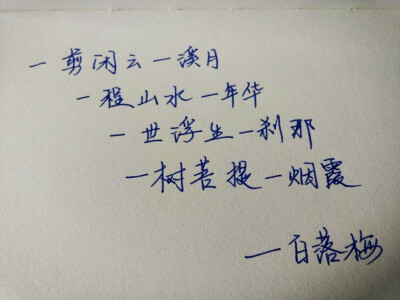 一剪闲云一溪月
一程山水一年华
一世浮生一刹那
一树菩提一烟霞
—白落梅